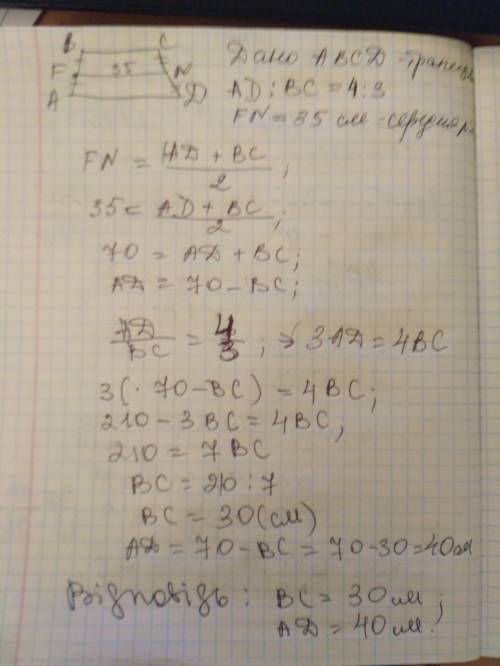 B C Дано ABCD - трапеція
F 35 N AD : BC = 4 : 3
A D FN = 35 см - середня
FN = AD + BC / 2 ;
35 = AD + BC / 2 ;
70 = AD + BC ;
AD = 70 - BC ;
AD / BC = 4 / 3 ; => 3 AD = 4 BC
3 ( · 70 - BC ) = 4 BC ;
210 - 3 BC = 4 BC ;
210 = 7 BC
BC = 210 : 7
BC = 30 (см)
AD = 70 - BC = 70 - 30 = 40 см
Відповідь : BC = 30 см ;
AD = 40 см .